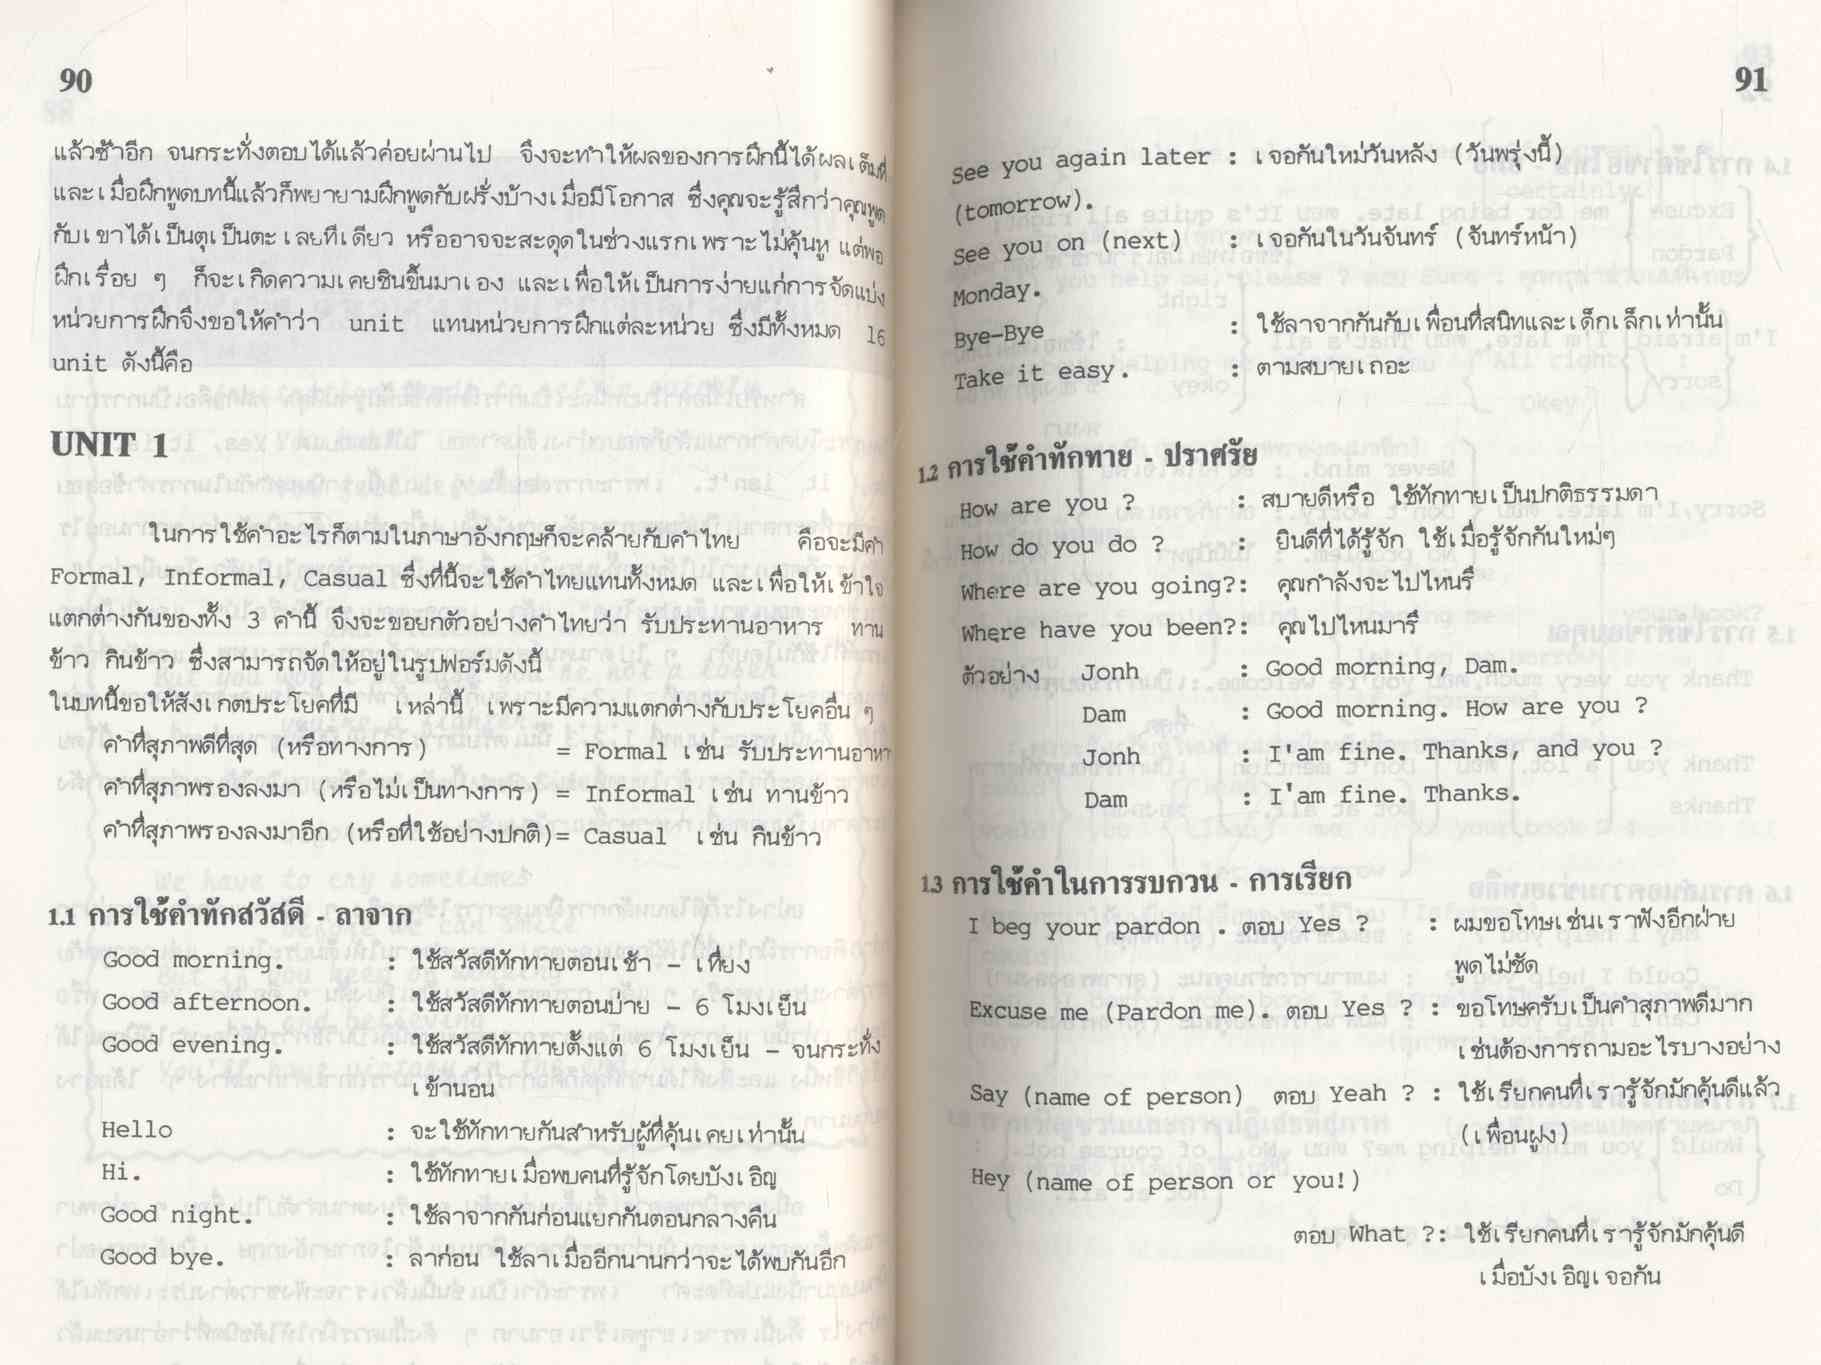 90
แล้วซ้ำอีก จนกระทั่งตอบได้แล้วค่อยผ่านไป จึงจะทำให้ผลของการฝึกนี้ได้ผลเต็มที่
และเมื่อฝึกพูดบทนี้แล้วก็พยายามฝึกพูดกับฝรั่งบ้างเมื่อมีโอกาส ซึ่งคุณจะรู้สึกว่าคุณพูด
กับเขาได้เป็นตุเป็นตะเลยทีเดียว หรืออาจจะสะดุดในช่วงแรกเพราะไม่คุ้นหู แต่พอ
ฝึกเรื่อย ๆ ก็จะเกิดความเคยชินขึ้นมาเอง และเพื่อให้เป็นการง่ายแก่การจัดแบ่ง
หน่วยการฝึกจึงขอให้คำว่า unit แทนหน่วยการฝึกแต่ละหน่วย ซึ่งมีทั้งหมด 16
unit ดังนี้คือ
UNIT 1
ในการใช้คำอะไรก็ตามในภาษาอังกฤษก็จะคล้ายกับคำไทย คือจะมีคำ
Formal, Informal, Casual ซึ่งที่นี้จะใช้คำไทยแทนทั้งหมด และเพื่อให้เข้าใจ
แตกต่างกันของทั้ง 3 คำนี้ จึงจะขอยกตัวอย่างคำไทยว่า รับประทานอาหาร ทาน
ข้าว กินข้าว ซึ่งสามารถจัดให้อยู่ในรูปฟอร์มดังนี้
ในบทนี้ขอให้สังเกตประโยคที่มี เหล่านี้ เพราะมีความแตกต่างกับประโยคอื่น ๆ
คำที่สุภาพดีที่สุด (หรือทางการ) = Formal เช่น รับประทานอาหา
คำที่สุภาพรองลงมา (หรือไม่เป็นทางการ) = Informal เช่น ทานข้าว
คำที่สุภาพรองลงมาอีก (หรือที่ใช้อย่างปกติ)= Casual เช่น กินข้าว
1.1 การใช้คำทักสวัสดี - ลาจาก
Good morning. : ใช้สวัสดีทักทายตอนเช้า - เที่ยง
Good afternoon. : ใช้สวัสดีทักทายตอนบ่าย - 6 โมงเย็น
Good evening. : ใช้สวัสดีทักทายตั้งแต่ 6 โมงเย็น - จนกระทั่ง
เข้านอน
Hello : จะใช้ทักทายกันสำหรับผู้ที่คุ้นเคยเท่านั้น
Hi. : ใช้ทักทายเมื่อพบคนที่รู้จักโดยบังเอิญ
Good night. : ใช้ลาจากกันก่อนแยกกันตอนกลางคืน
Good bye. : ลาก่อน ใช้ลาเมื่ออีกนานกว่าจะได้พบกันอีก
91
See you again later : เจอกันใหม่วันหลัง (วันพรุ่งนี้)
(tomorrow).
See you on (next) : เจอกันในวันจันทร์ (จันทร์หน้า)
Monday.
Bye-Bye : ใช้ลาจากกันกับเพื่อนที่สนิทและเด็กเล็กเท่านั้น
Take it easy. : ตามสบายเถอะ
1.2 การใช้คำทักทาย - ปราศรัย
How are you ? : สบายดีหรือ ใช้ทักทายเป็นปกติธรรมดา
How do you do ? : ยินดีที่ได้รู้จัก ใช้เมื่อรู้จักกันใหม่ๆ
Where are you going?: คุณกำลังจะไปไหนรึ
Where have you been?: คุณไปไหนมารึ
ตัวอย่าง Jonh : Good morning, Dam.
Dam : Good morning. How are you ?
Jonh : I'am fine. Thanks, and you ?
Dam : I'am fine. Thanks.
1.3 การใช้คำในการรบกวน - การเรียก
I beg your pardon . ตอบ Yes ? : ผมขอโทษเช่นเราฟังอีกฝ่าย
พูดไม่ชัด
Excuse me (Pardon me). ตอบ Yes ? : ขอโทษครับเป็นคำสุภาพดีมาก
เช่นต้องการถามอะไรบางอย่าง
Say (name of person) ตอบ Yeah ? : ใช้เรียกคนที่เรารู้จักมักคุ้นดีแล้ว
(เพื่อนฝูง)
Hey (name of person or you!)
ตอบ What ?: ใช้เรียกคนที่เรารู้จักมักคุ้นดี
เมื่อบังเอิญเจอกัน